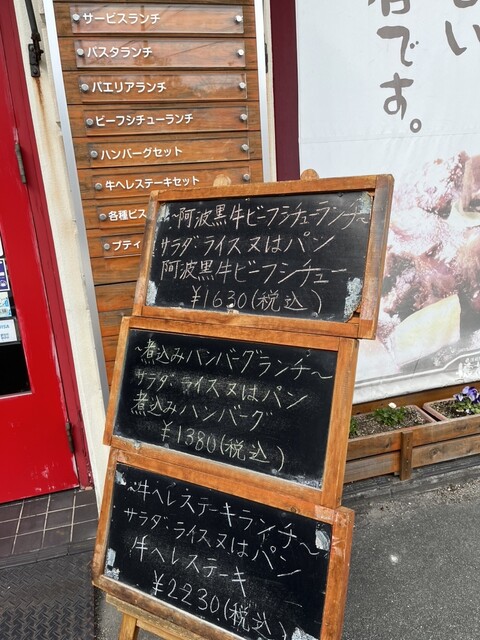 サービスランチ
パスタランチ
パエリアランチ
ビーフシチューランチ
ハンバーグセット
牛ヘレステーキセット
各種ピス
プティ
です。
~阿波黒牛ビーフシチューランチ~
サラダ・ライス又はパン
阿波黒牛ビーフシチュー
¥1630(税込)
~煮込みハンバーグランチ~
サラダ・ライス又はパン
煮込みハンバーグ
¥1380(税込)
~牛ヘレステーキランチ~
サラダ・ライス又はパン
牛ヘレステーキ
¥2230(税込)